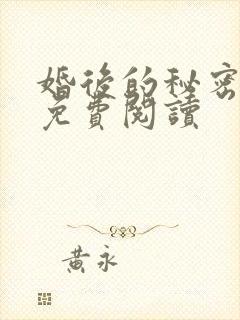 婚後的秘密
免費閱讀
黃永